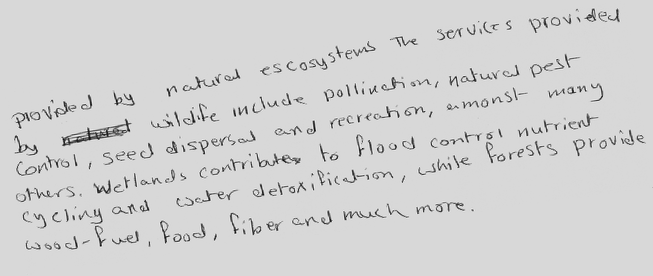 provided by natural escosystems The services provided
by wildife include pollination, natural pest
control, seed dispersal and recreation, amonst many
others. Wetlands contributes to flood control nutrient
cycling and water detoxification, while forests provide
wood-fuel, food, fiber and much more.